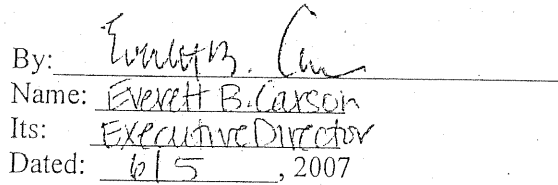 By: Everett B. Carson
Name: Everett B. Carson
Its: Executive Director
Dated: 6/5, 2007